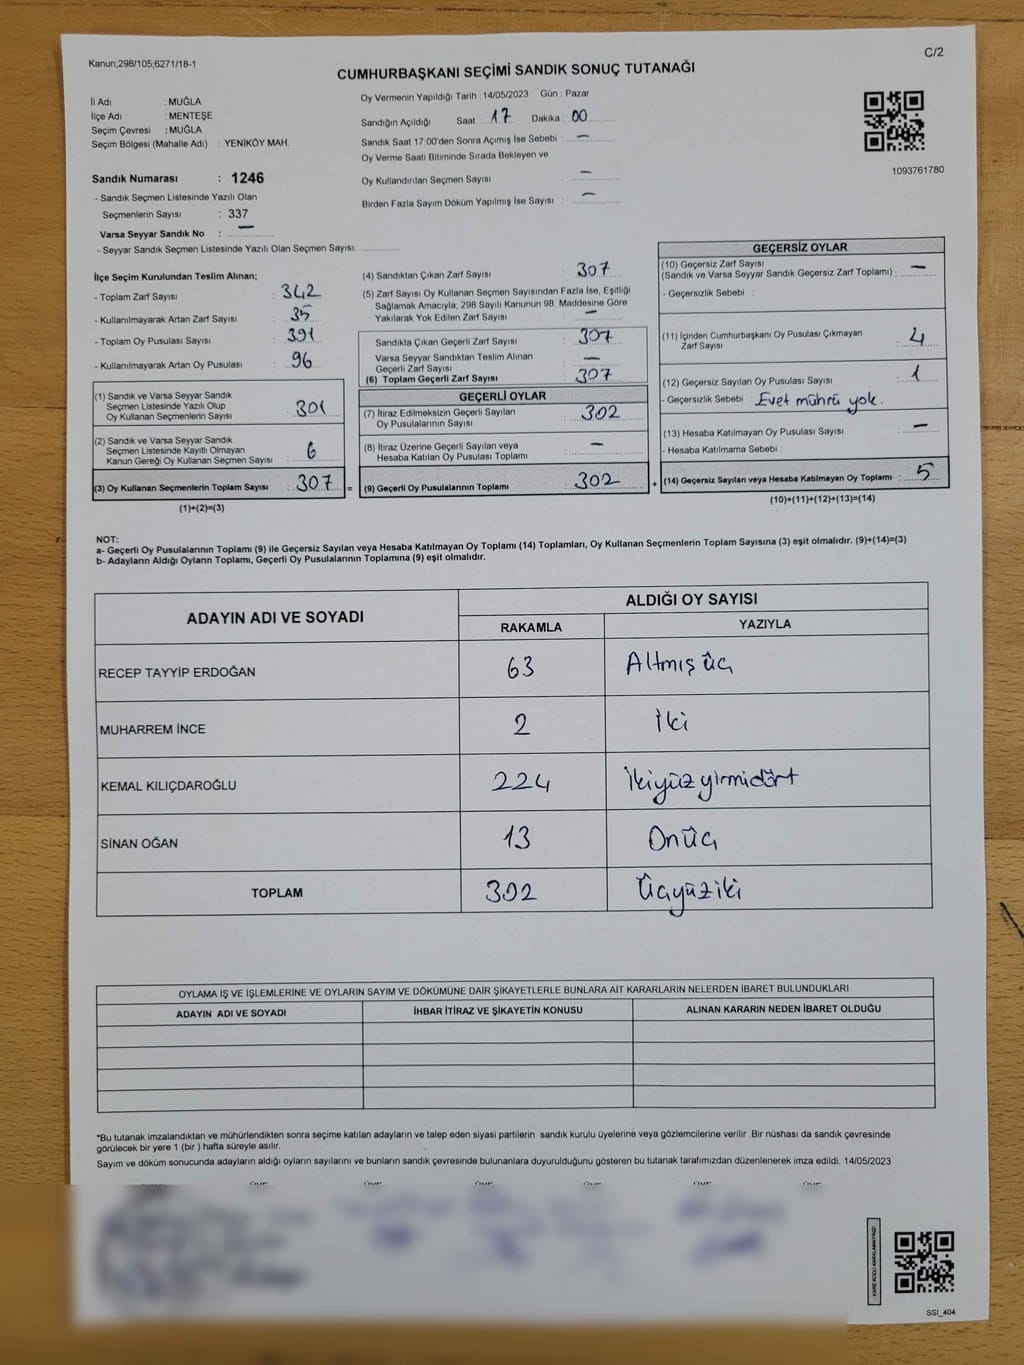 Kanun;298/105;6271/18-1
C/2
CUMHURBAŞKANI SEÇİMİ SANDIK SONUÇ TUTANAĞI
İl Adı : MUĞLA
İlçe Adı : MENTEŞE
Seçim Çevresi : MUĞLA
Seçim Bölgesi (Mahalle Adı) : YENİKÖY MAH.
Sandık Numarası : 1246
- Sandık Seçmen Listesinde Yazılı Olan
Seçmenlerin Sayısı : 337
Varsa Seyyar Sandık No : —
- Seyyar Sandık Seçmen Listesinde Yazılı Olan Seçmen Sayısı:
Oy Vermenin Yapıldığı Tarih : 14/05/2023 Gün : Pazar
Sandığın Açıldığı Saat : 17 Dakika : 00
Sandık Saat 17:00'den Sonra Açımış İse Sebebi : —
Oy Verme Saati Bitiminde Sırada Bekleyen ve
Oy Kullandırılan Seçmen Sayısı : —
Birden Fazla Sayım Döküm Yapılmış İse Sayısı : —
1093761780
İlçe Seçim Kurulundan Teslim Alınan;
- Toplam Zarf Sayısı : 342
- Kullanılmayarak Artan Zarf Sayısı : 35
- Toplam Oy Pusulası Sayısı : 391
- Kullanılmayarak Artan Oy Pusulası : 96
(1) Sandık ve Varsa Seyyar Sandık
Seçmen Listesinde Yazılı Olup
Oy Kullanan Seçmenlerin Sayısı : 301
(2) Sandık ve Varsa Seyyar Sandık
Seçmen Listesinde Kayıtlı Olmayan
Kanun Gereği Oy Kullanan Seçmen Sayısı : 6
(3) Oy Kullanan Seçmenlerin Toplam Sayısı : 307 =
(1)+(2)=(3)
(4) Sandıktan Çıkan Zarf Sayısı : 307
(5) Zarf Sayısı Oy Kullanan Seçmen Sayısından Fazla İse, Eşitliği
Sağlamak Amacıyla, 298 Sayılı Kanunun 98. Maddesine Göre
Yakılarak Yok Edilen Zarf Sayısı : —
Sandıkta Çıkan Geçerli Zarf Sayısı : 307
Varsa Seyyar Sandıktan Teslim Alınan
Geçerli Zarf Sayısı : —
(6) Toplam Geçerli Zarf Sayısı : 307
GEÇERLİ OYLAR
(7) İtiraz Edilmeksizin Geçerli Sayılan
Oy Pusulalarının Sayısı : 302
(8) İtiraz Üzerine Geçerli Sayılan veya
Hesaba Katılan Oy Pusulası Toplamı : —
(9) Geçerli Oy Pusulalarının Toplamı : 302 +
GEÇERSİZ OYLAR
(10) Geçersiz Zarf Sayısı
(Sandık ve Varsa Seyyar Sandık Geçersiz Zarf Toplamı) : —
- Geçersizlik Sebebi :
(11) İçinden Cumhurbaşkanı Oy Pusulası Çıkmayan
Zarf Sayısı : 4
(12) Geçersiz Sayılan Oy Pusulası Sayısı : 1
- Geçersizlik Sebebi : Evet mührü yok.
(13) Hesaba Katılmayan Oy Pusulası Sayısı : —
- Hesaba Katılmama Sebebi :
(14) Geçersiz Sayılan veya Hesaba Katılmayan Oy Toplamı : 5
(10)+(11)+(12)+(13)=(14)
NOT:
a- Geçerli Oy Pusulalarının Toplamı (9) ile Geçersiz Sayılan veya Hesaba Katılmayan Oy Toplamı (14) Toplamları, Oy Kullanan Seçmenlerin Toplam Sayısına (3) eşit olmalıdır. (9)+(14)=(3)
b- Adayların Aldığı Oyların Toplamı, Geçerli Oy Pusulalarının Toplamına (9) eşit olmalıdır.
ADAYIN ADI VE SOYADI
ALDIĞI OY SAYISI
RAKAMLA YAZIYLA
RECEP TAYYİP ERDOĞAN 63 Altmış üç
MUHARREM İNCE 2 İki
KEMAL KILIÇDAROĞLU 224 İkiyüz yirmidört
SİNAN OĞAN 13 Onüç
TOPLAM 302 Üçyüziki
OYLAMA İŞ VE İŞLEMLERİNE VE OYLARIN SAYIM VE DÖKÜMÜNE DAİR ŞİKAYETLERLE BUNLARA AİT KARARLARIN NELERDEN İBARET BULUNDUKLARI
ADAYIN ADI VE SOYADI İHBAR İTİRAZ VE ŞİKAYETİN KONUSU ALINAN KARARIN NEDEN İBARET OLDUĞU
*Bu tutanak imzalandıktan ve mühürlendikten sonra seçime katılan adayların ve talep eden siyasi partilerin sandık kurulu üyelerine veya gözlemcilerine verilir .Bir nüshası da sandık çevresinde
görülecek bir yere 1 (bir ) hafta süreyle asılır.
Sayım ve döküm sonucunda adayların aldığı oyların sayılarını ve bunların sandık çevresinde bulunanlara duyurulduğunu gösteren bu tutanak tarafımızdan düzenlenerek imza edildi. 14/05/2023
KARE KODU KARALAMAYINIZ!
SSI_404